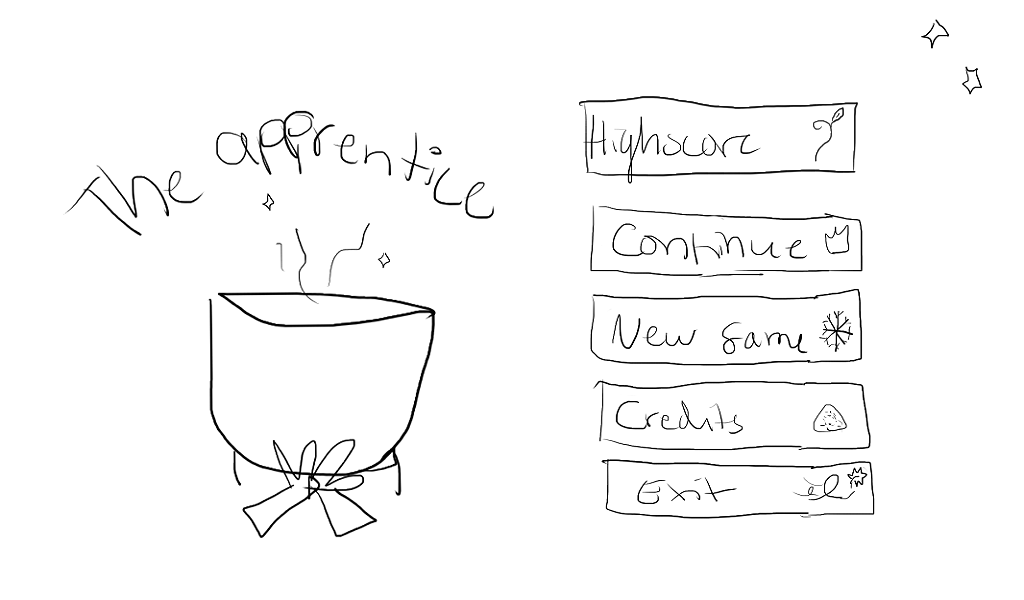 The apprentice
Highscore
Continue
New game
Credits
Exit